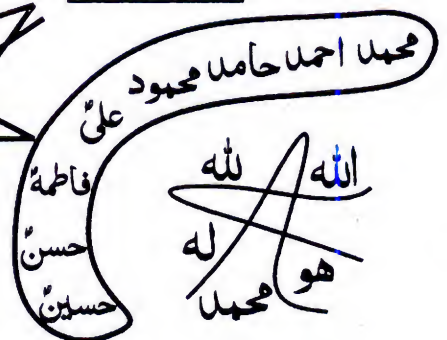 محمد احمد حامد محمود
علیؑ
فاطمہؑ
حسنؑ
حسینؑ
الله لله
له هو
محمد